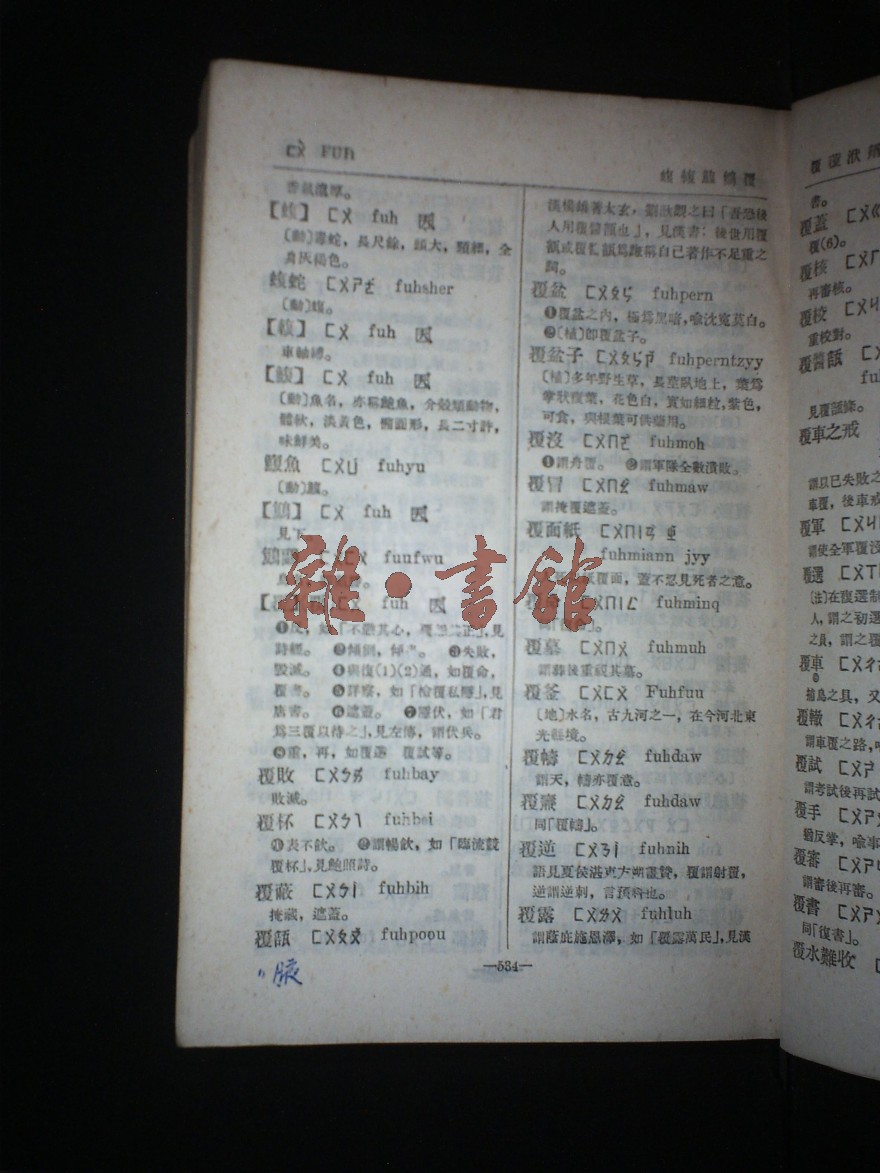 ㄈㄨ FUH
香氣濃厚。
【蝮】 ㄈㄨ fuh
〔動〕毒蛇,長尺餘,頭大,頸細,全
身灰褐色。
蝮蛇 ㄈㄨㄕㄜ fuhsher
〔動〕蝮。
ㄈㄨ fuh
車軸縛。
【鰒】 ㄈㄨ fuh
〔動〕魚名,亦稱鮑魚,分殼類動物,
體軟,淡黃色,橢圓形,長二寸許,
味鮮美。
鰒魚 ㄈㄨㄩ fuhyu
〔動〕鰒。
ㄈㄨ fuh
見下
fuufwu
ㄈㄨ fuh
❶反,如「不懲其心,覆怨其正」,見
詩經。 ❷傾倒,傾 ❸失敗,
毀滅。 ❹與復(1)(2)通,如覆命,
覆書。 ❺詳察,如「檢覆私
❻遮蓋。 ❼埋伏,如「君
爲三覆以待之」,見左傳,謂伏兵。
❽重,再,如覆選 覆試等。
覆敗 ㄈㄨㄅㄞ fuhbay
敗滅。
覆杯 ㄈㄨㄅㄟ fuhbei
❶表不飲。 ❷謂暢飲,如「臨流競
覆杯」,見鮑照詩。
覆蔽 ㄈㄨㄅㄧ fuhbih
掩蔽,遮蓋。
覆瓿 ㄈㄨㄆㄡ fuhpoou
漢楊雄著太玄,劉歆觀之曰「吾恐後
人用覆醬瓿也」,見漢書;後世用覆
瓿或覆醬瓿爲謙稱自己著作不足重之
詞。
覆盆 ㄈㄨㄆㄣ fuhpern
❶覆盆之內,極爲黑暗,喩沈寃莫白。
❷〔植〕卽覆盆子。
覆盆子 ㄈㄨㄆㄣㄗ fuhperntzyy
〔植〕多年野生草,長莖臥地上,葉爲
掌狀複葉,花色白,實如細粒,紫色,
可食,與根葉可供藥用。
覆沒 ㄈㄨㄇㄛ fuhmoh
❶謂舟覆。 ❷謂軍隊全數潰敗。
覆冒 ㄈㄨㄇㄠ fuhmaw
謂掩覆遮蓋。
覆面紙 ㄈㄨㄇㄧㄢ ㄓ
fuhmiann jyy
覆面,蓋不忍見死者之意。
ㄈㄨㄇㄧㄥ fuhminq
覆墓 ㄈㄨㄇㄨ fuhmuh
謂葬後重視其墓。
覆釜 ㄈㄨㄈㄨ Fuhfuu
〔地〕水名,古九河之一,在今河北東
光縣境。
覆幬 ㄈㄨㄉㄠ fuhdaw
謂天,幬亦覆意。
ㄈㄨㄉㄠ fuhdaw
同「覆幬」。
覆逆 ㄈㄨㄋㄧ fuhnih
語見夏侯湛東方朔畫贊,覆謂射覆,
逆謂逆刺,言預料也。
覆露 ㄈㄨㄌㄨ fuhluh
謂蔭庇施恩澤,如「覆露萬民」,見漢
—534—
腋
書。
覆蓋
覆(6)。
覆核
再審核。
覆校
重校對。
覆醬瓿
見覆瓿條。
覆車之戒
謂以已失敗之
車覆,後車戒
覆軍
謂使全軍覆沒
覆選
〔法〕在複選制
人,謂之初選
之員,謂之覆
覆車
捕鳥之具,又
覆轍
謂車覆之路,
覆試
謂考試後再試
覆手
猶反掌,喩事
覆審
謂審後再審。
覆書
同「復書」。
覆水難收
雜·書館